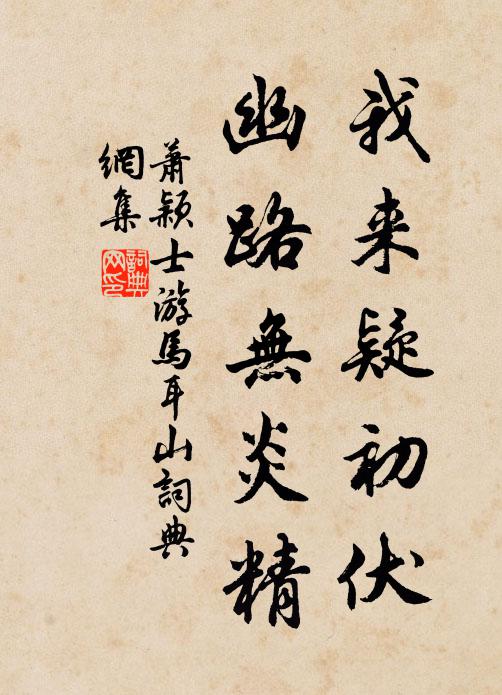 我来疑初伏
幽路無炎精
蕭颖士游馬耳山詞典
網集
詞典
网印